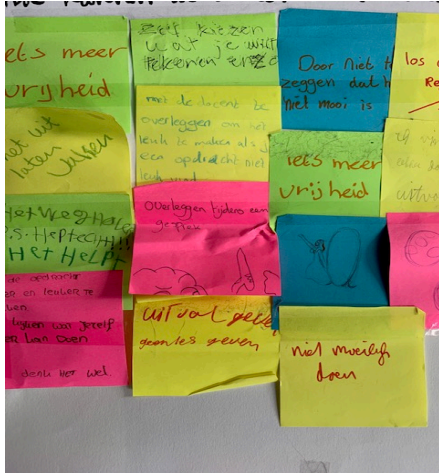 iets meer
vrijheid
zelf kiezen
wat je wilt
tekenen enzo
Door niet te
zeggen dat h
niet mooi is
los
Re
met de docent te
overleggen om het
leuk te maken als
een opdracht niet
leuk
niet uit
laten
iets meer
vrijheid
Het weg halen
P.S. HEPTECH!!!
HET HELPT
overleggen tijdens een
gesprek
de opdracht
en leuker te
kijken wat jezelf
er kan doen
denk het wel.
uitval geven
geen les geven
niet moeilijk
doen